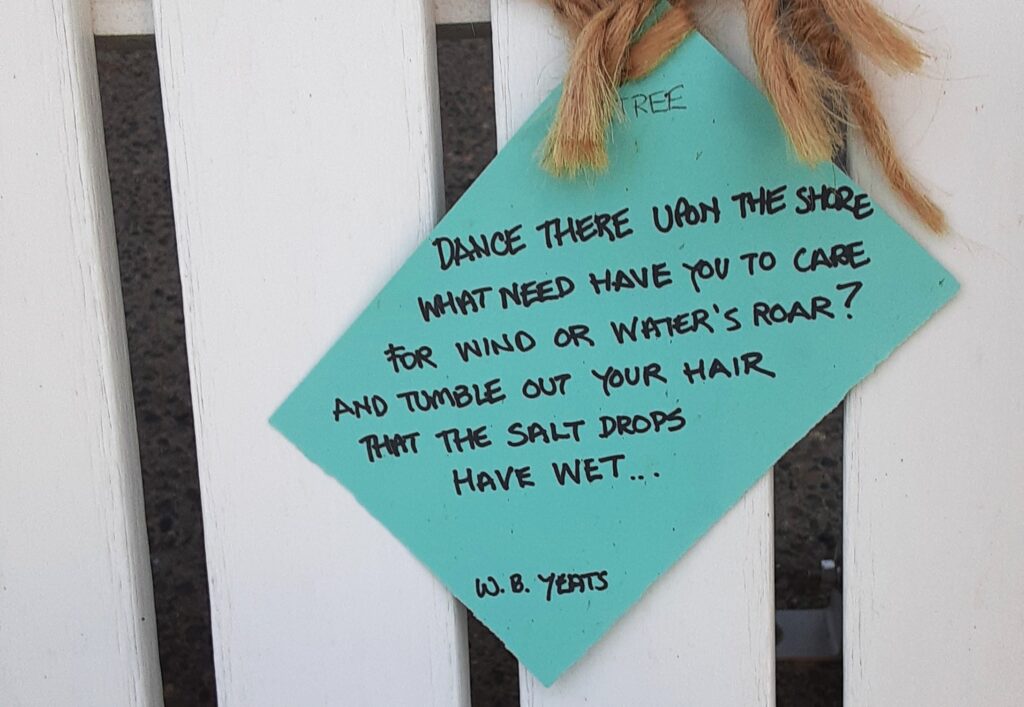 TREE
DANCE THERE UPON THE SHORE
WHAT NEED HAVE YOU TO CARE
FOR WIND OR WATER'S ROAR?
AND TUMBLE OUT YOUR HAIR
THAT THE SALT DROPS
HAVE WET...
W. B. YEATS